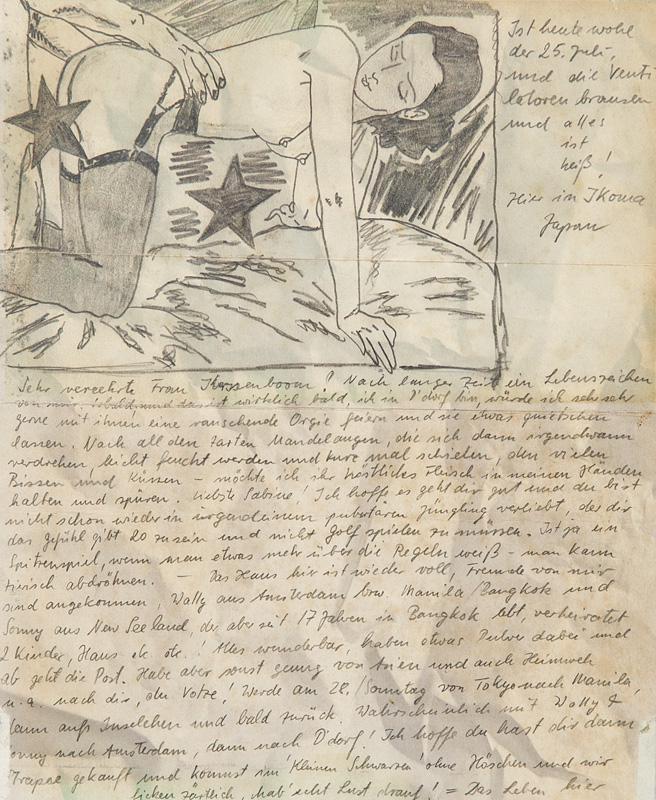 Ist heute wohl
der 25. Juli,
und die Venti
latoren brausen
und alles
ist
heiß!
Hier in Ikoma
Japan
Sehr verehrte Frau ! Nach langer Zeit ein Lebenszeichen
von mir. Sobald, und das ist wirklich bald, ich in D'dorf bin, würde ich sehr sehr
gerne mit ihnen eine rauschende Orgie feiern und sie etwas quietschen
lassen. Nach all den zarten Mandelaugen, die sich dann irgendwann
verdrehen, leicht feucht werden und kurz mal schielen, den vielen
Bissen und Küssen – möchte ich ihr köstliches Fleisch in meinen Händen
halten und spüren. Liebste Sabine! Ich hoffe es geht dir gut und du bist
nicht schon wieder in irgendeinem Jüngling verliebt, der dir
das gefühl gibt 20 zu sein und nicht Golf spielen zu müssen. Ist ja ein
Spitzenspiel, wenn man etwas mehr über die Regeln weiß – man kann
tierisch abdröhnen. — Das Haus hier ist wieder voll, Freunde von mir
sind angekommen, Wally aus Amsterdam bzw. Manila/Bangkok und
Sonny aus New Seeland, der aber seit 17 Jahren in Bangkok lebt, verheiratet
2 Kinder, Haus etc. etc.! Alles wunderbar, haben etwas Pulver dabei und
ab geht die Post. Habe aber sonst genug von Asien und auch Heimweh
u.a. nach dir, du Votze! Werde am 28./Sonntag von Tokyo nach Manila,
dann aufs Inselchen und bald zurück. Wahrscheinlich mit Wally &
Sonny nach Amsterdam, dann nach D'dorf! Ich hoffe du hast dir dann
gekauft und kommst im 'Kleinen Schwarzen' ohne Höschen und wir
ficken zärtlich, hab' echt Lust drauf! = Das Leben hier